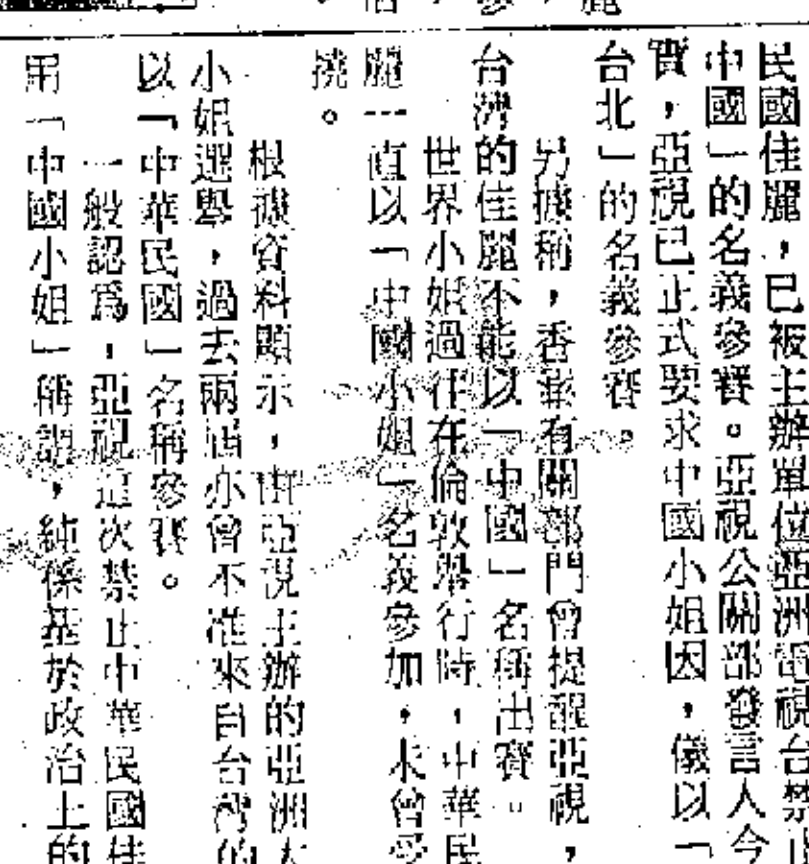 民國佳麗，已被主辦單位亞洲電視台禁止
中國」的名義參賽。亞視公關部發言人今
實，亞視已正式要求中國小姐因，儀以「
台北」的名義參賽。
另據稱，香港有關部門曾提醒亞視，
台灣的佳麗不能以「中國」名稱出賽。
世界小姐過往在倫敦舉行時，中華民
麗一直以「中國小姐」名義參加，未曾受
撓。
根據資料顯示，由亞視主辦的亞洲
小姐選舉，過去兩屆亦曾不准來自台灣的
以「中華民國」名稱參賽。
一般認爲，亞視這次禁止中華民國佳
用「中國小姐」稱謂，純係基於政治上的